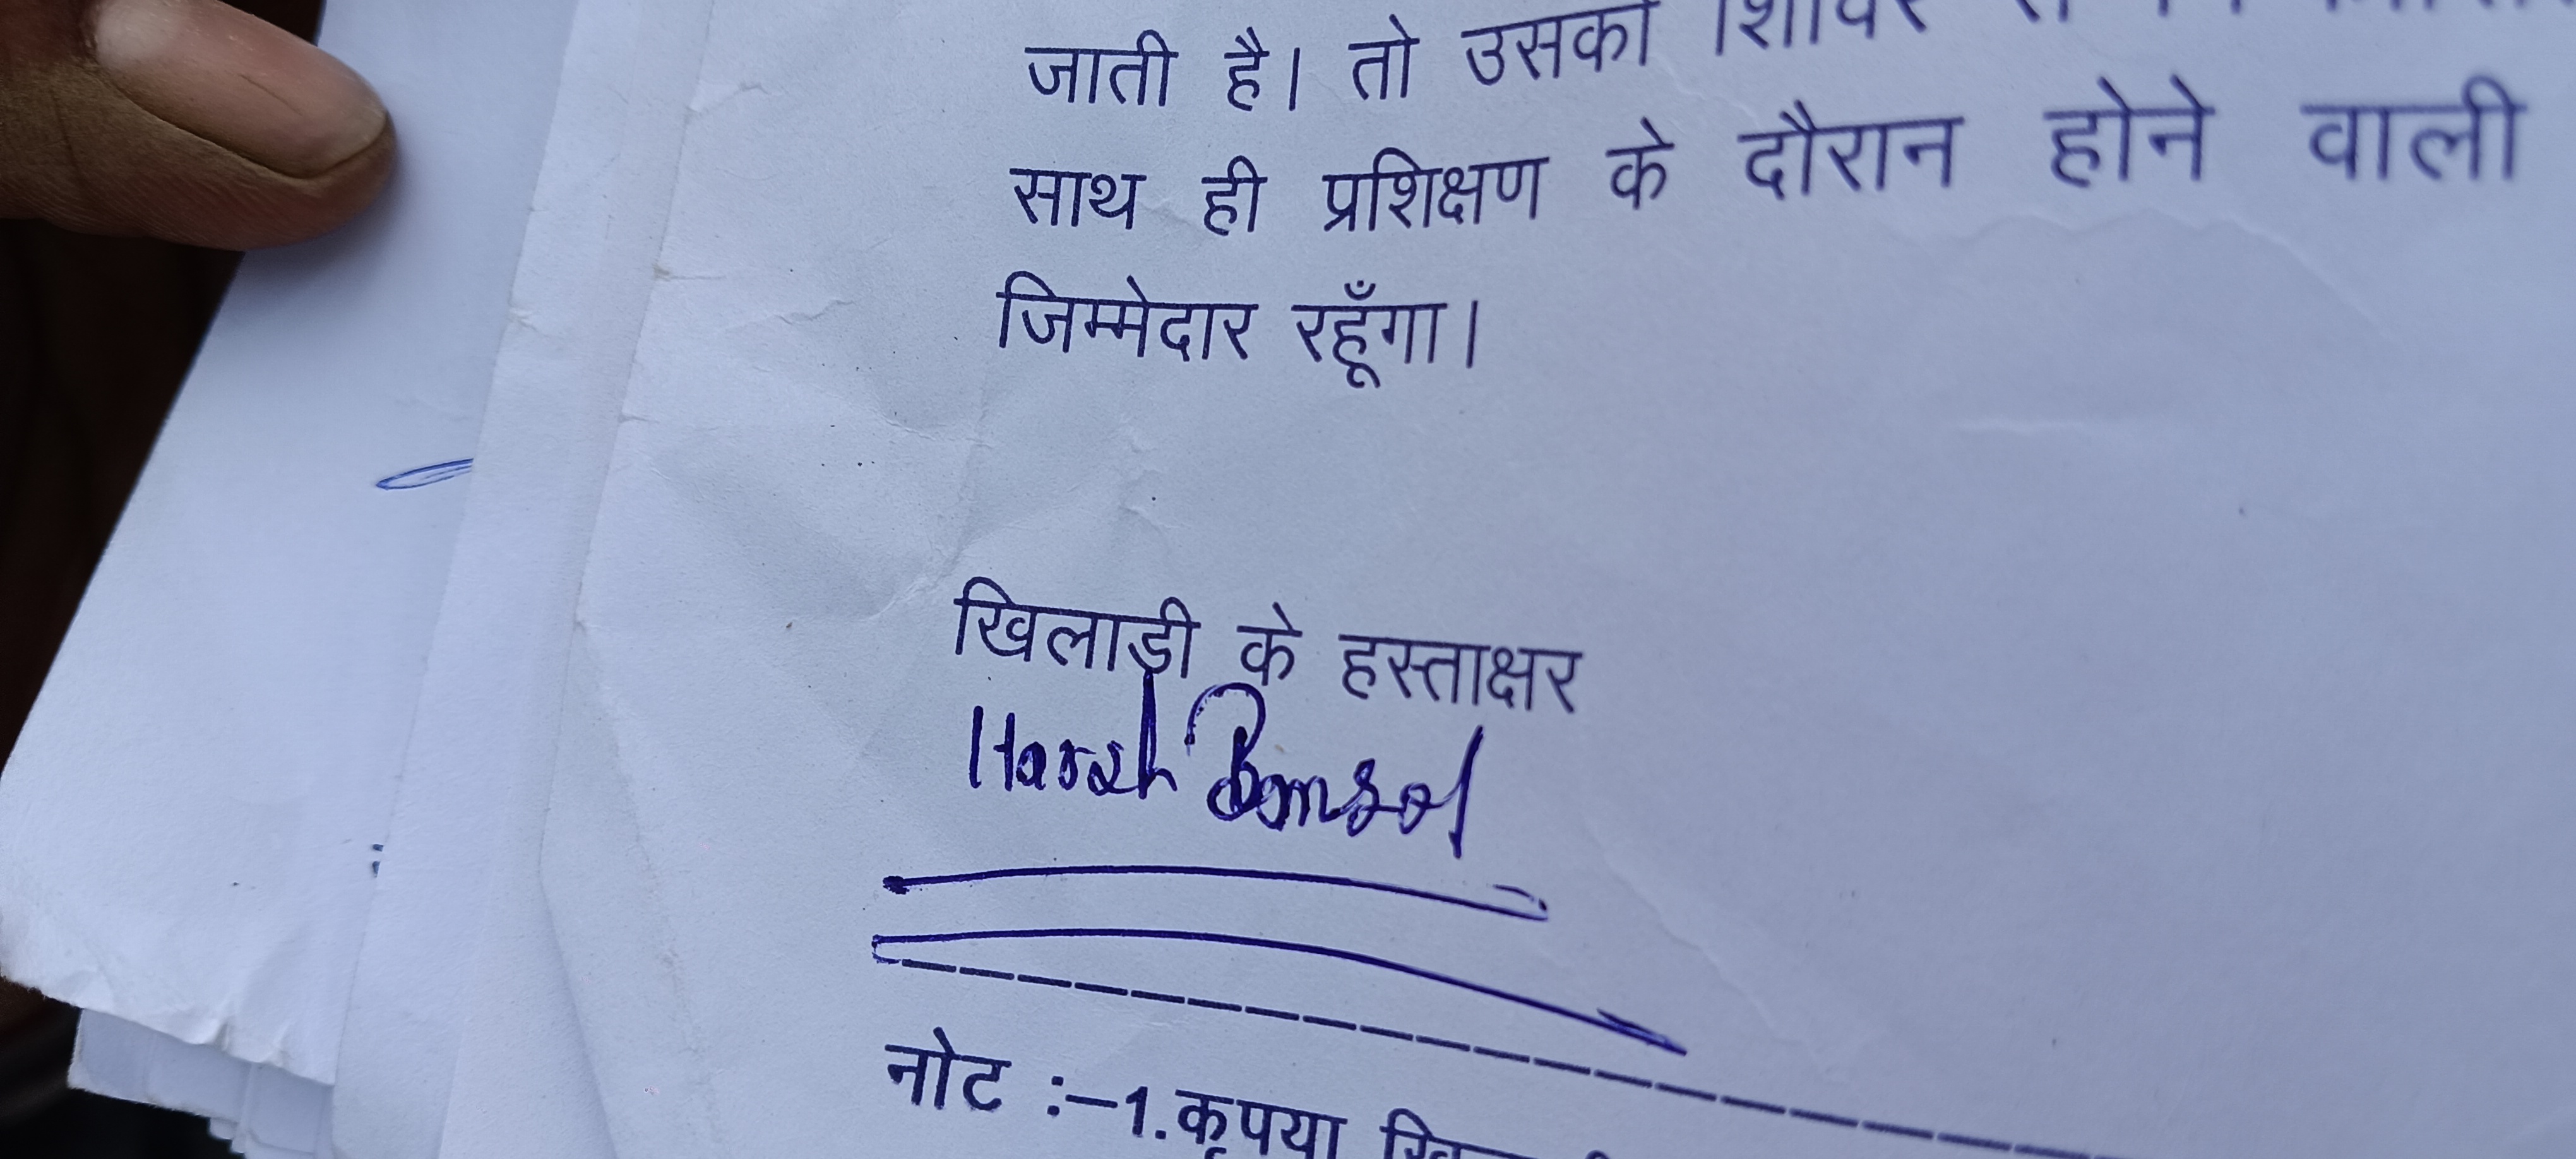 जाती है। तो उसको शिविर
साथ ही प्रशिक्षण के दौरान होने वाली
जिम्मेदार रहूँगा।
खिलाड़ी के हस्ताक्षर
Harsh Bansal
नोट :–1.कृपया